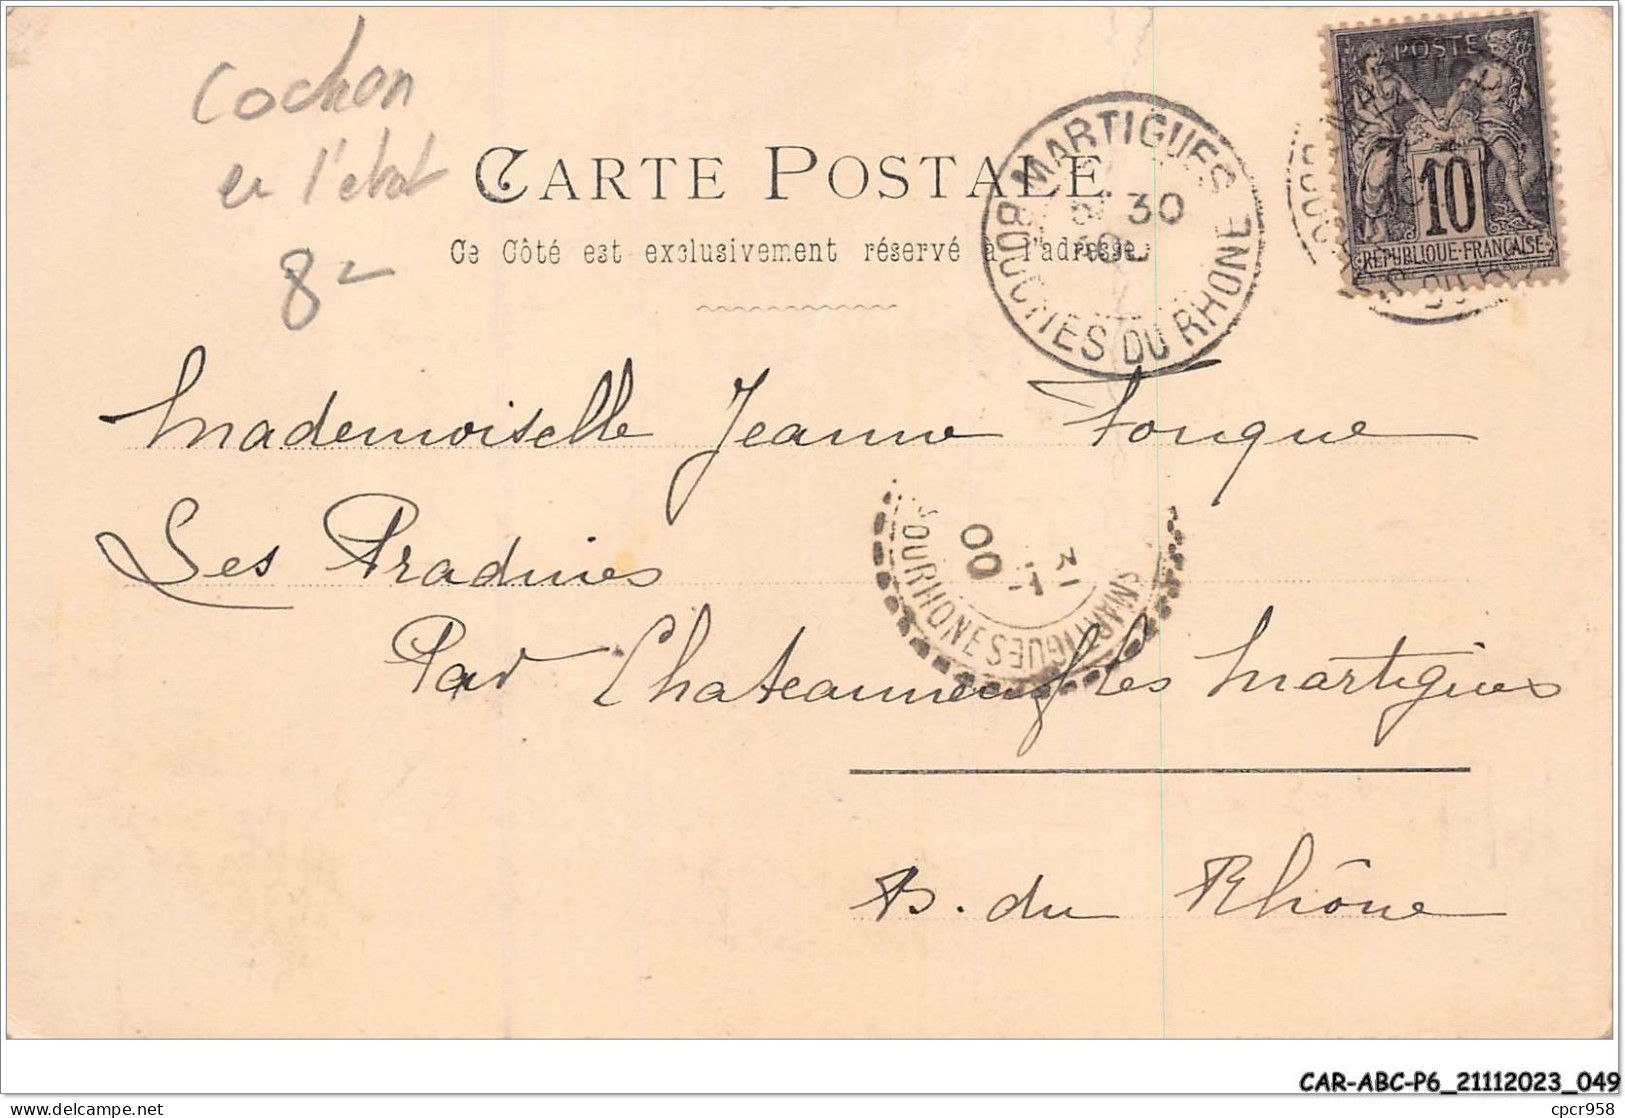 Cochon
en l'état
8-
CARTE POSTALE
Ce Côté est exclusivement réservé à l'adresse
MARTIGUES
30
BOUCHES DU RHONE
POSTE
10
REPUBLIQUE FRANÇAISE
Mademoiselle Jeanne Fouque
Les Pradines
00
MARTIGUES
Par Chateauneuf les Martigues
B. du Rhône
CAR-ABC-P6_21112023_049
cpcr958